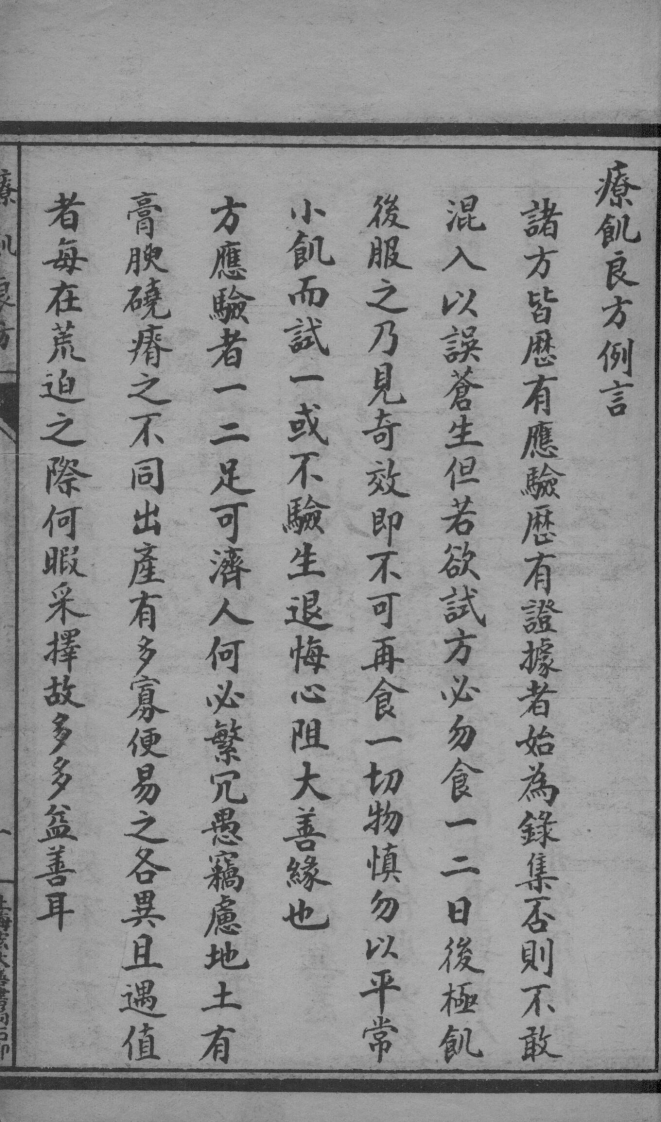 療飢良方例言
諸方皆歷有應驗歷有證據者始為錄集否則不敢
混入以誤蒼生但若欲試方必勿食一二日後極飢
後服之乃見奇效即不可再食一切物慎勿以平常
小飢而試一或不驗生退悔心阻大善緣也
方應驗者一二足可濟人何必繁冗愚竊慮地土有
膏腴磽瘠之不同出產有多寡便易之各異且遇值
者每在荒迫之際何暇采擇故多多益善耳
療飢良方
一
上海宏大善書局石印